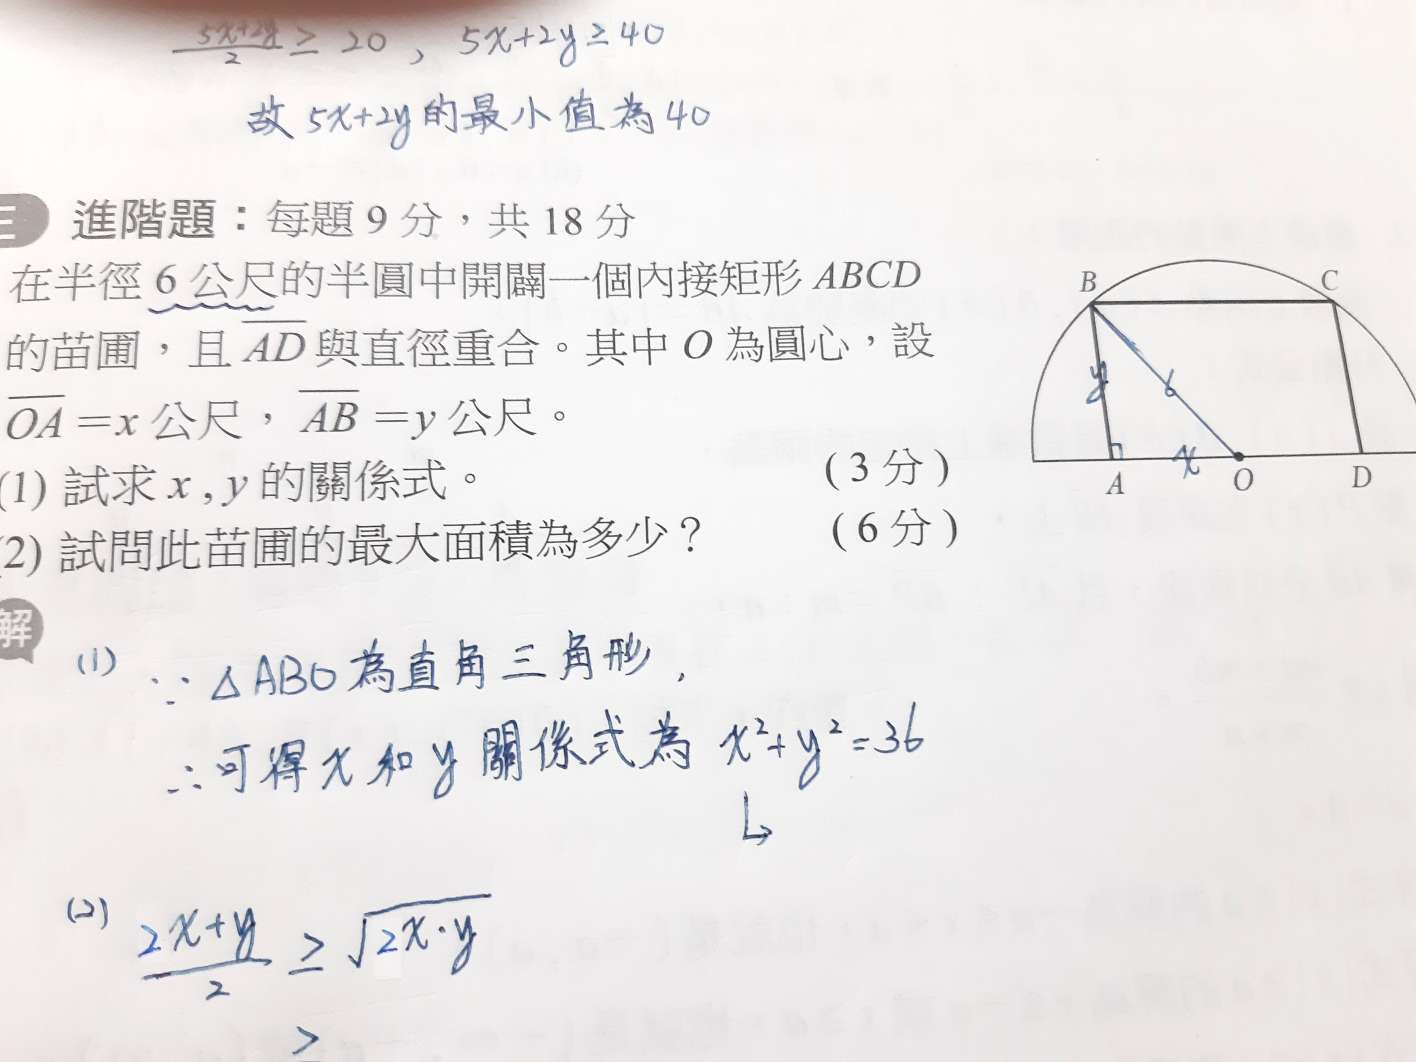 5x+2y/2 ≥ 20 , 5x+2y≥40
故 5x+2y 的最小值為 40
三 進階題：每題 9 分，共 18 分
在半徑 6 公尺的半圓中開闢一個內接矩形 ABCD
的苗圃，且 AD 與直徑重合。其中 O 為圓心，設
OA =x 公尺， AB =y 公尺。
(1) 試求 x , y 的關係式。 (3 分)
(2) 試問此苗圃的最大面積為多少？ (6 分)
B C
y 6
x
A O D
解
(1) ∵ △ABO 為直角三角形,
∴可得 x 和 y 關係式為 x²+y²=36
↳
(2) 2x+y/2 ≥ √2x·y
≥